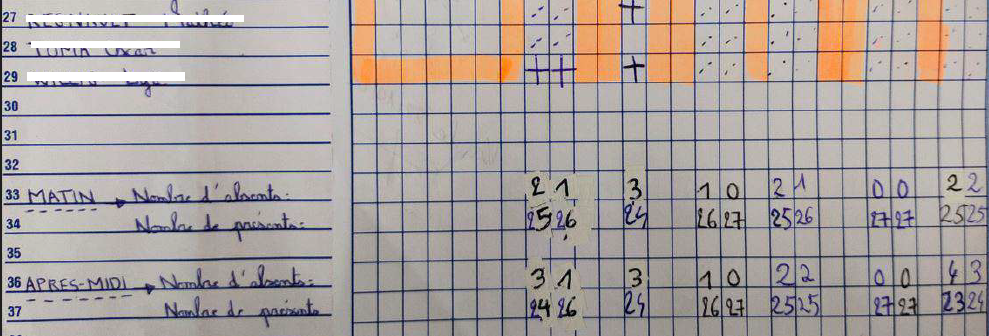 27
28
29
30
31
32
33 MATIN → Nombre d'absents: 2 1 3 1 0 2 1 0 0 2 2
34 Nombre de présents: 25 26 24 26 27 25 26 27 27 25 25
35
36 APRES-MIDI → Nombre d'absents: 3 1 3 1 0 2 2 0 0 4 3
37 Nombre de présents 24 26 24 26 27 25 25 27 27 23 24